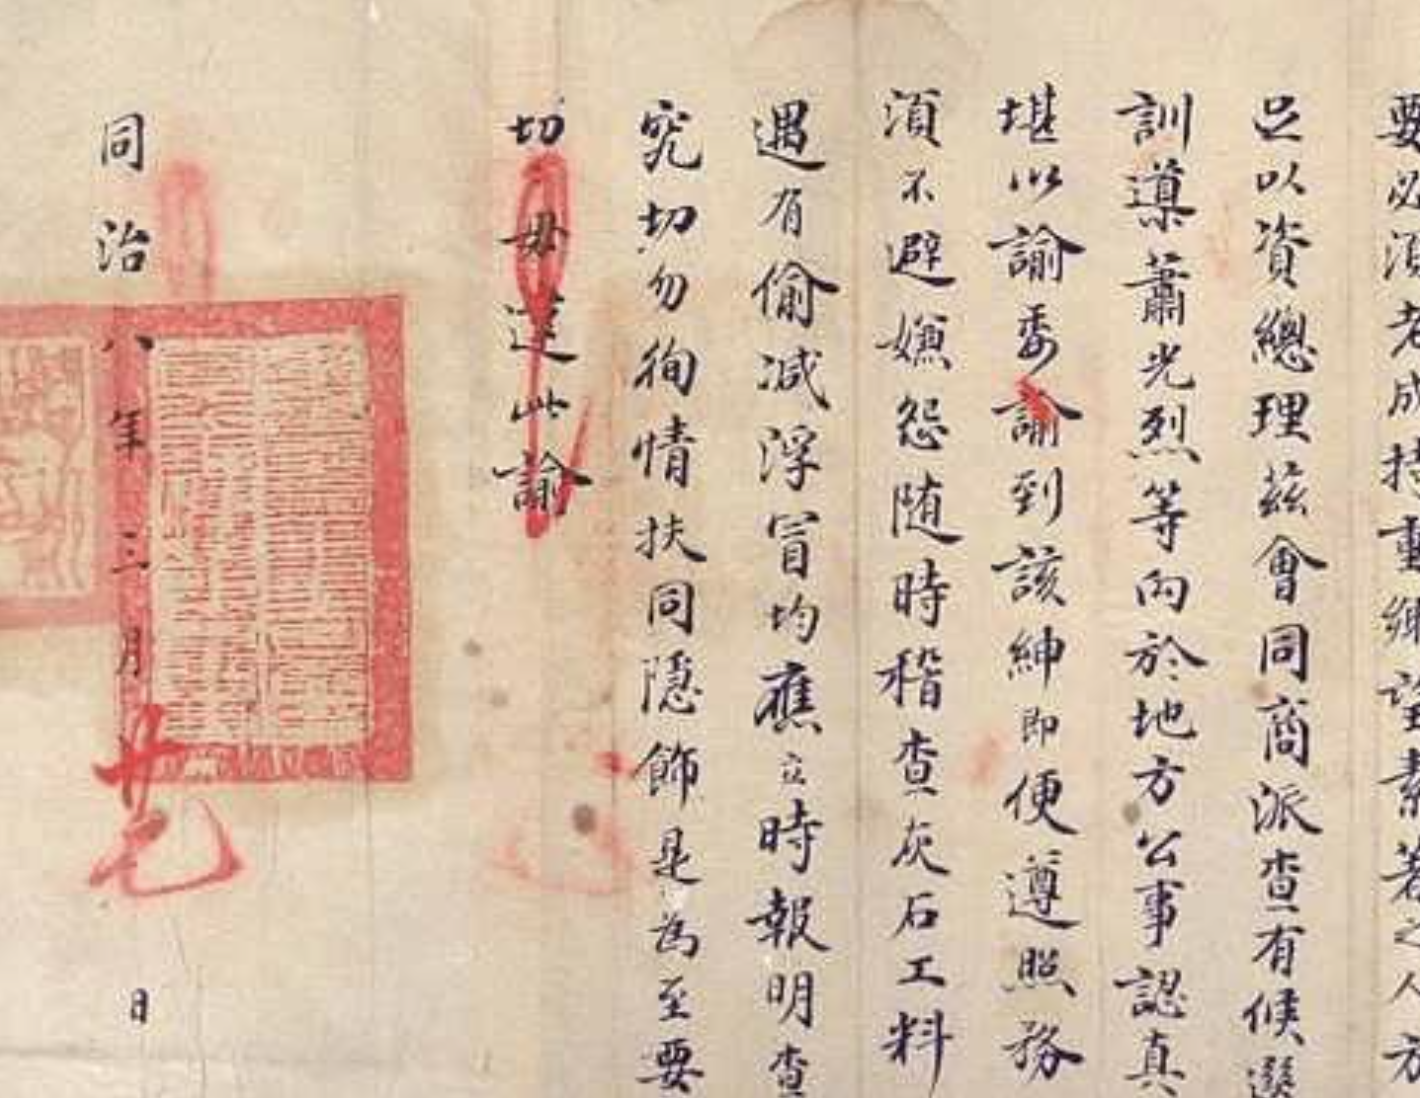 要必須老成持重鄉望素著之人方
足以資總理茲會同商派查有候選
訓導蕭光烈等向於地方公事認真
堪以諭委諭到該紳即便遵照務
須不避嫌怨随時稽查灰石工料
遇有偷减浮冒均應立時報明查
究切勿徇情扶同隱飾是為至要
切毋違此諭
同治八年三月廿九日